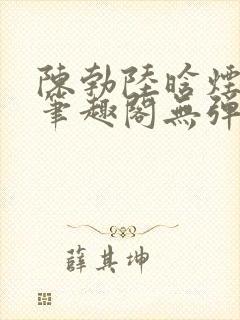 陳勃陸晗煙
筆趣閣無彈
薛其坤